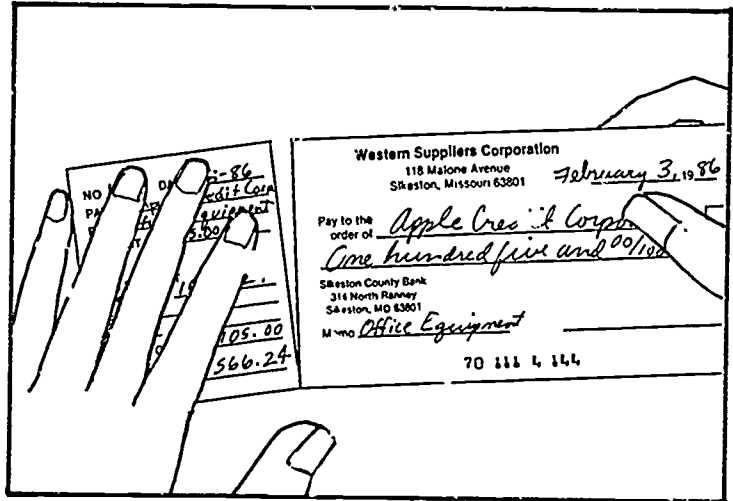 NO
-86
edit Corp
Equipment
5.00
105.00
566.24
Western Suppliers Corporation
118 Malone Avenue
Sikeston, Missouri 63801
February 3, 19 86
Pay to the
order of Apple Cre it Corpo
One hundred five and 00/100
Sikeston County Bank
316 North Ranney
Sikeston, MO 63801
Memo Office Equipment
70 111 4 144